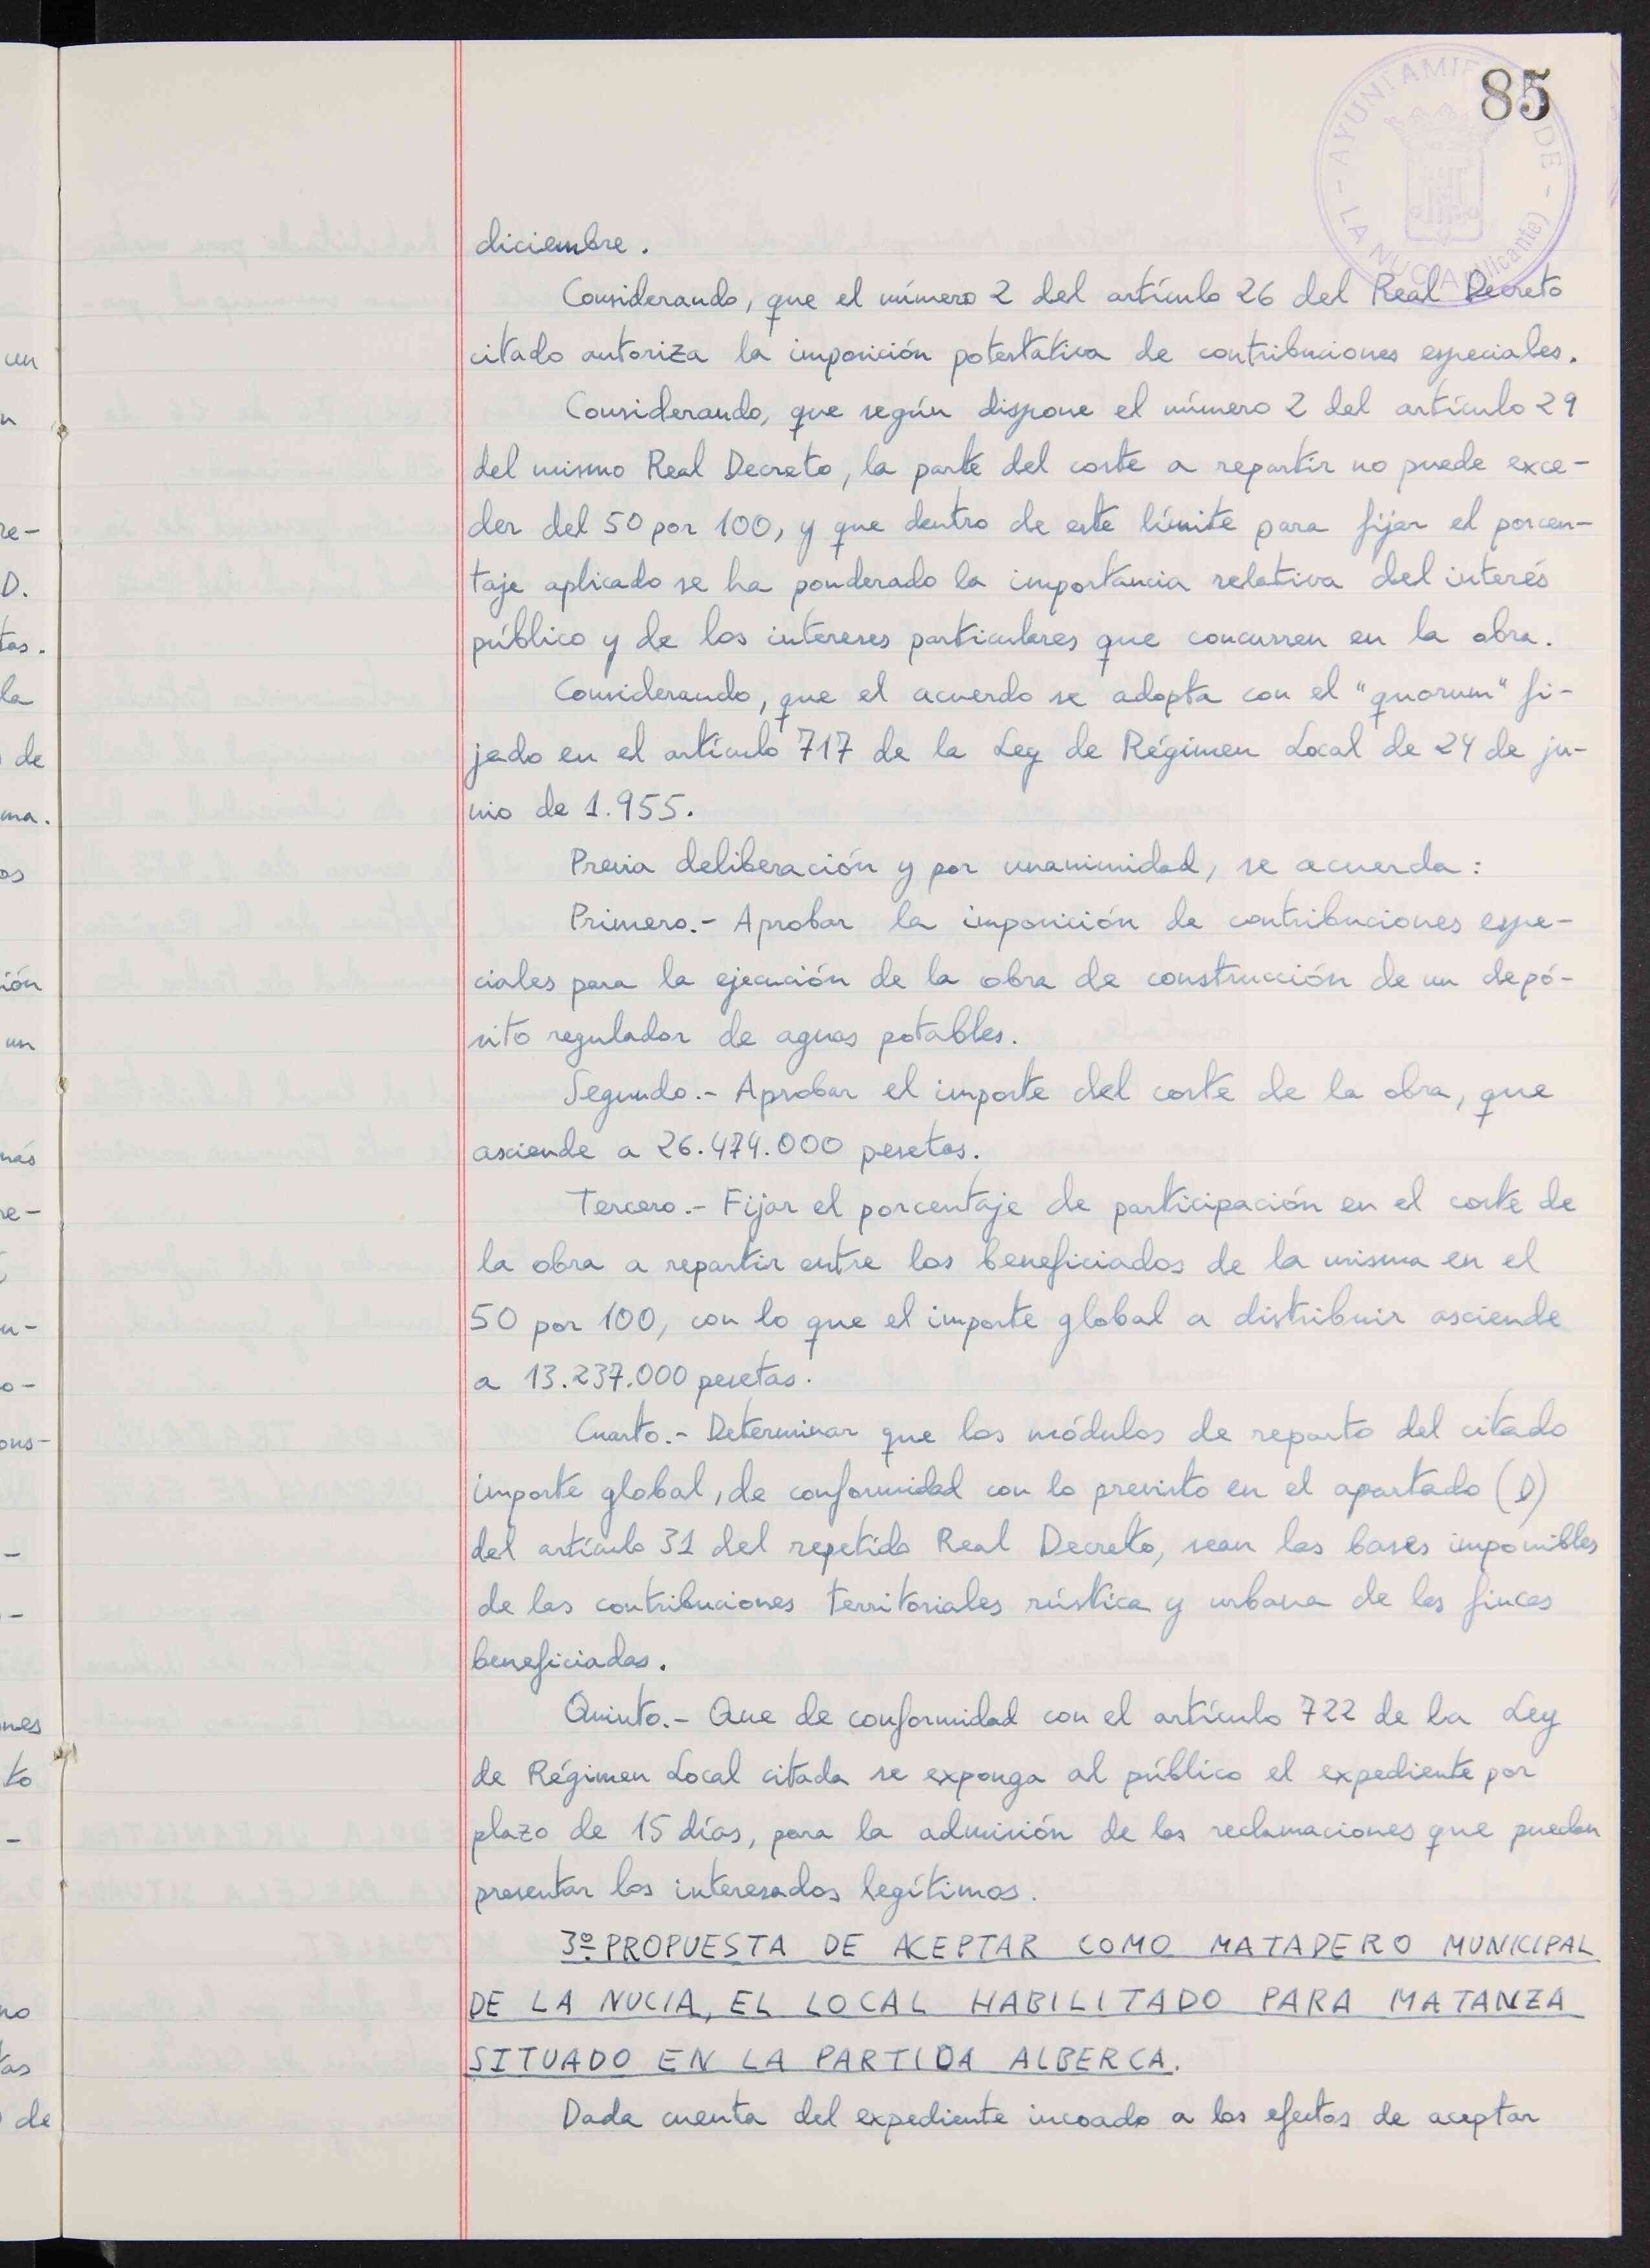 85
AYUNTAMIENTO DE
LA NUCIA (Alicante)
diciembre.
Considerando, que el número 2 del artículo 26 del Real Decreto
citado autoriza la imposición potestativa de contribuciones especiales.
Considerando, que según dispone el número 2 del artículo 29
del mismo Real Decreto, la parte del coste a repartir no puede exce-
der del 50 por 100, y que dentro de este límite para fijar el porcen-
taje aplicado se ha ponderado la importancia relativa del interés
público y de los intereses particulares que concurren en la obra.
Considerando, que el acuerdo se adopta con el "quorum" fi-
jado en el artículo 717 de la Ley de Régimen Local de 24 de ju-
nio de 1.955.
Previa deliberación y por unanimidad, se acuerda:
Primero.- Aprobar la imposición de contribuciones espe-
ciales para la ejecución de la obra de construcción de un depó-
sito regulador de aguas potables.
Segundo.- Aprobar el importe del coste de la obra, que
asciende a 26.474.000 pesetas.
Tercero.- Fijar el porcentaje de participación en el coste de
la obra a repartir entre los beneficiados de la misma en el
50 por 100, con lo que el importe global a distribuir asciende
a 13.237.000 pesetas.
Cuarto.- Determinar que los módulos de reparto del citado
importe global, de conformidad con lo previsto en el apartado (D)
del artículo 31 del repetido Real Decreto, sean las bases imponibles
de las contribuciones territoriales rústica y urbana de las fincas
beneficiadas.
Quinto.- Que de conformidad con el artículo 722 de la Ley
de Régimen Local citada se exponga al público el expediente por
plazo de 15 días, para la admisión de las reclamaciones que puedan
presentar los interesados legítimos.
3º PROPUESTA DE ACEPTAR COMO MATADERO MUNICIPAL
DE LA NUCIA, EL LOCAL HABILITADO PARA MATANZA
SITUADO EN LA PARTIDA ALBERCA.
Dada cuenta del expediente incoado a los efectos de aceptar